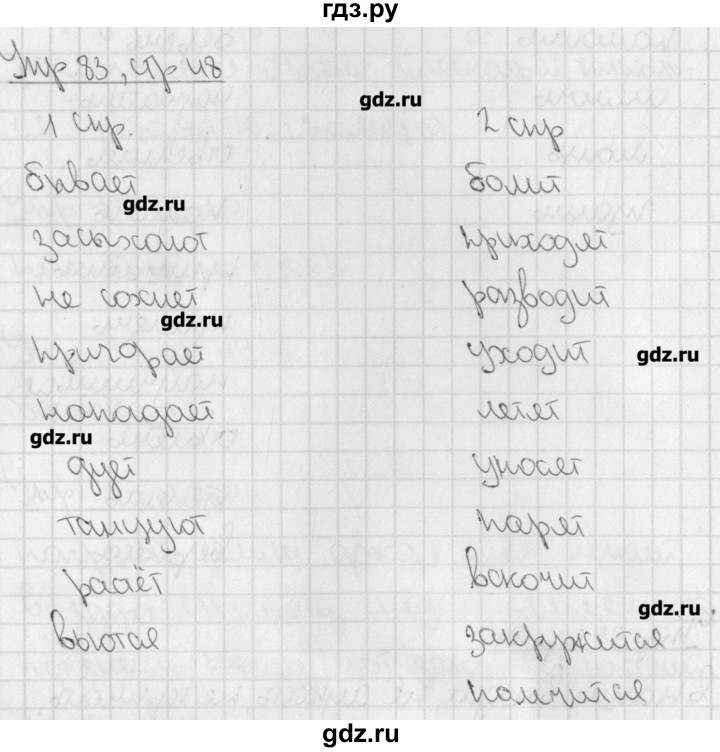 гдз.ру
Упр 83, стр 48
gdz.ru
1 спр. 2 спр
бывает болит
gdz.ru
засыхают приходят
не сохнет разводит
gdz.ru
пригорает уходит
gdz.ru
нападает летят
gdz.ru
дует уносят
танцуют парят
растёт вскочит
gdz.ru
вьются закружится
помчится
gdz.ru